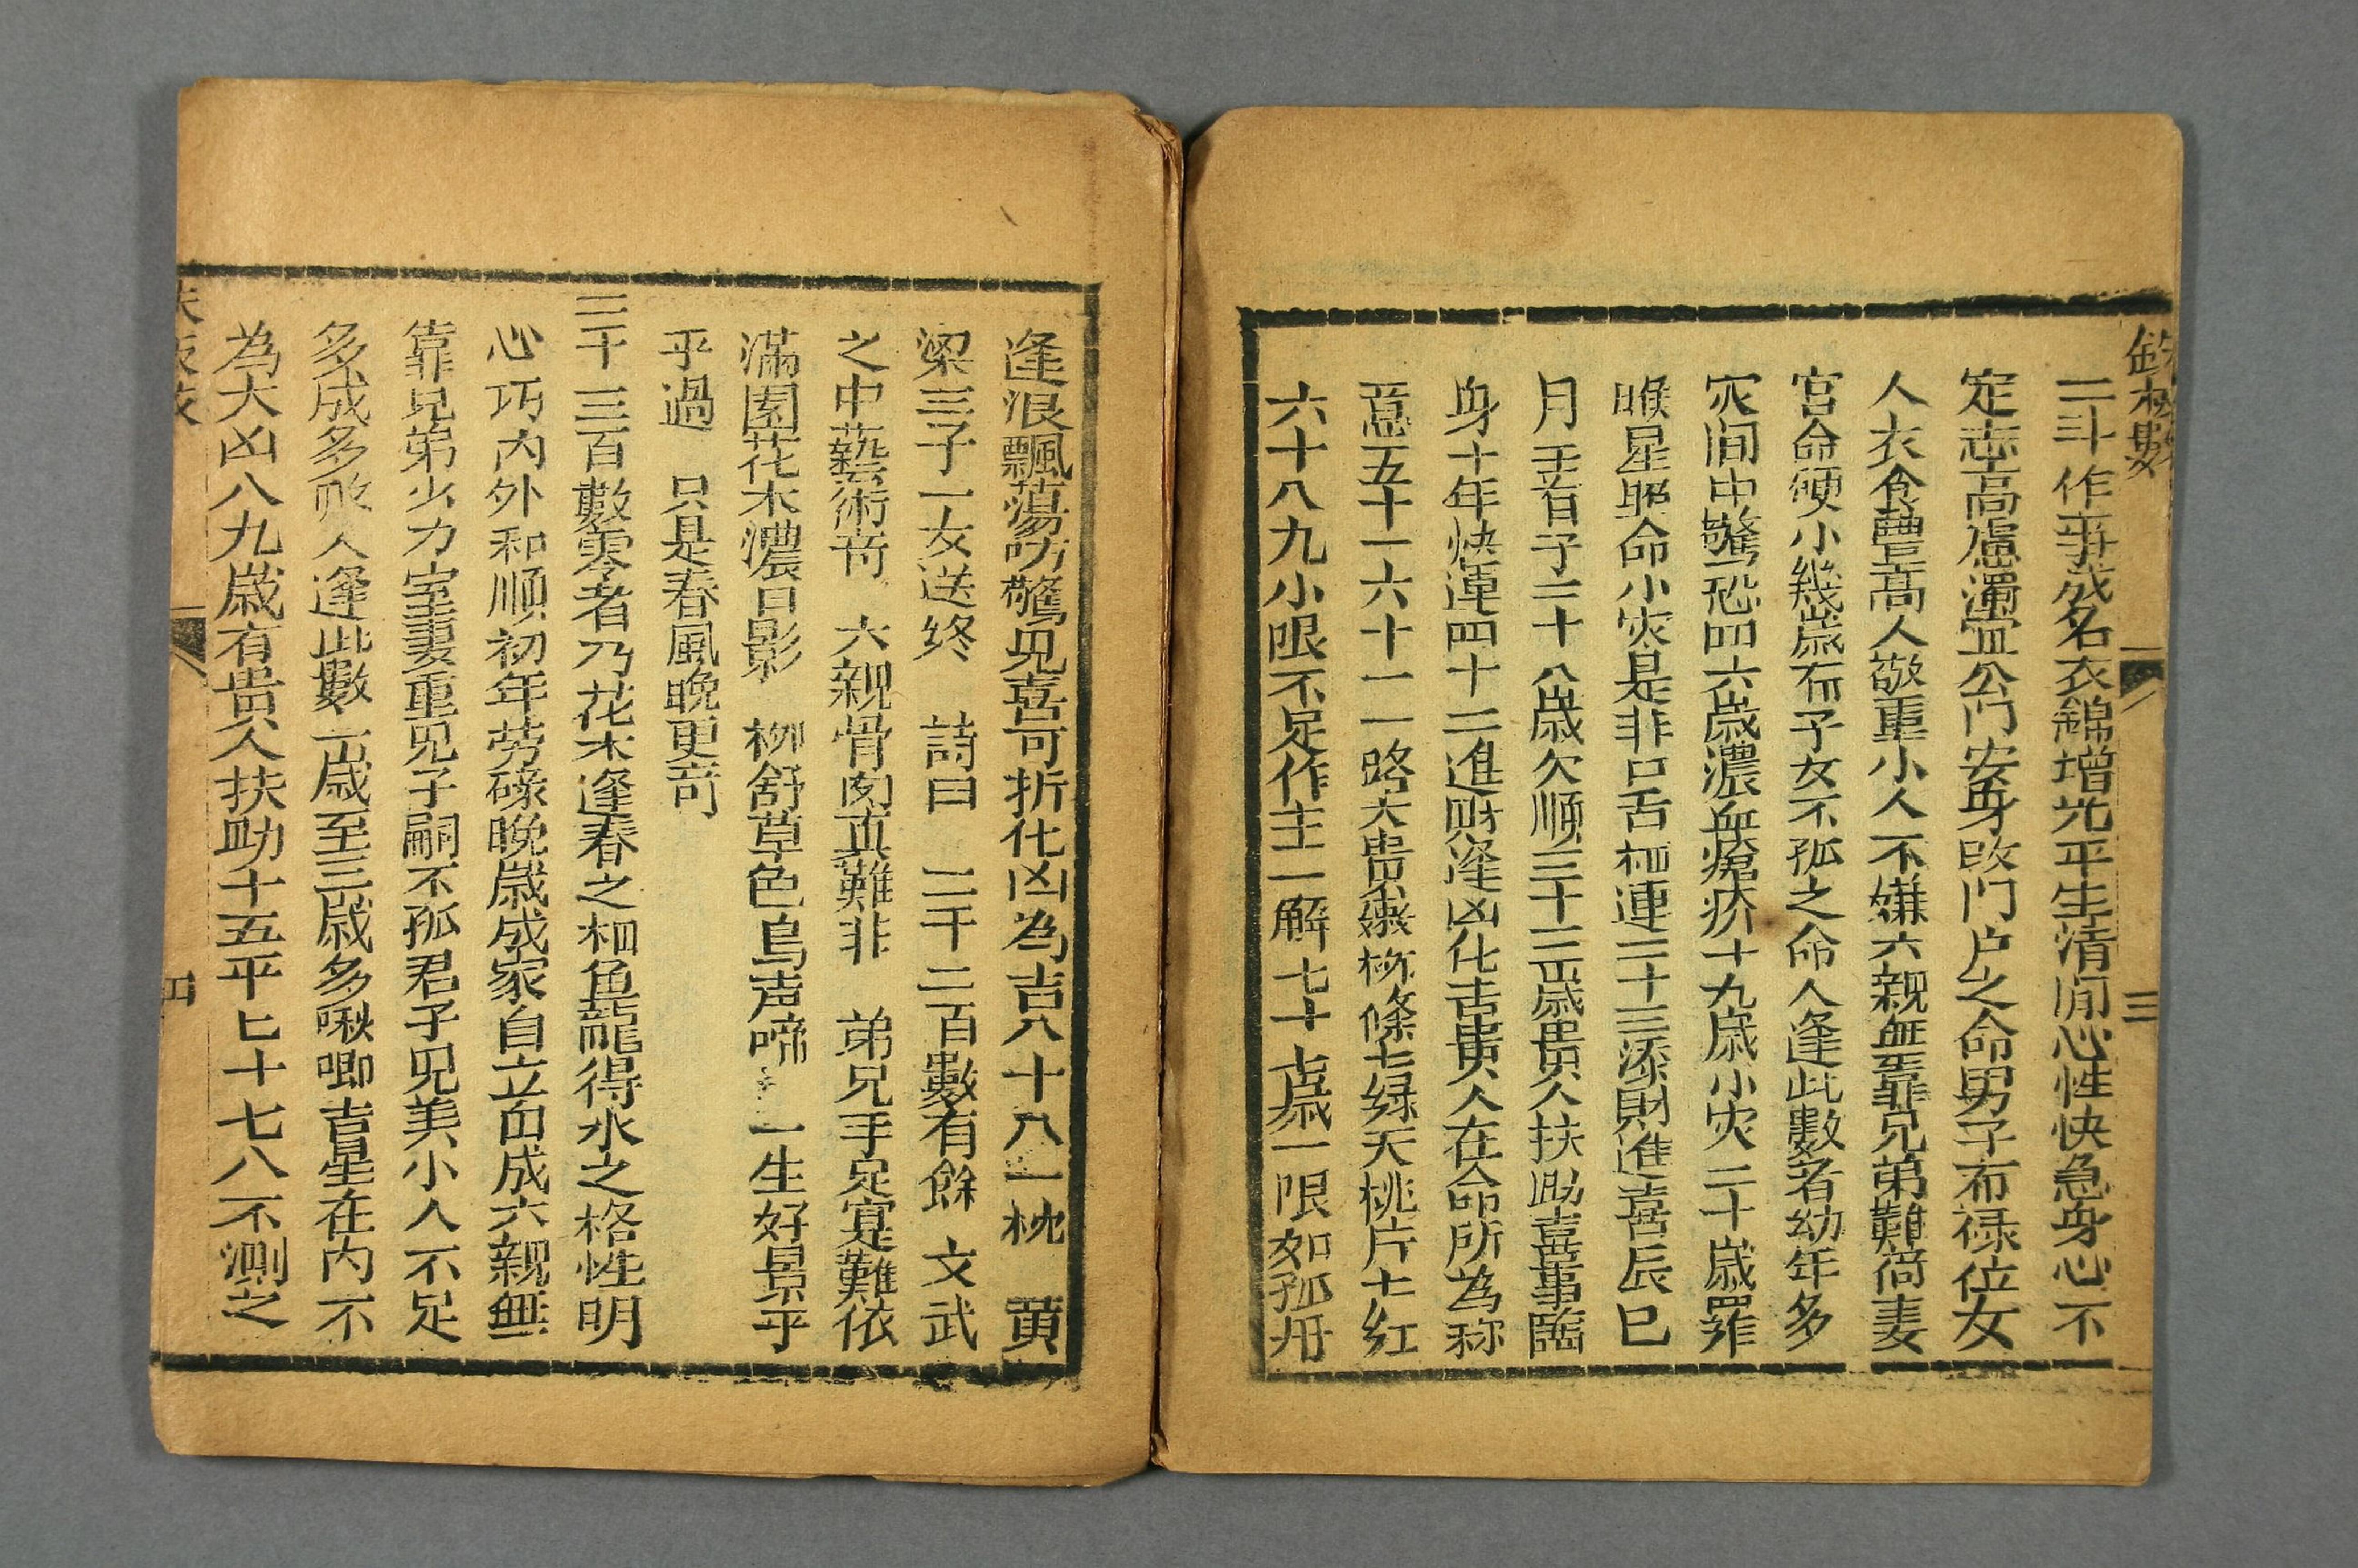 三
二斗作事成名衣錦增光平生清閒心性快急身心不
定志高慮濁宜公門安身改門户之命男子有禄位女
人衣食豐高人敬重小人不嫌六親無靠兄弟難倚妻
宮命硬小幾歲有子女不孤之命人逢此數者幼年多
灾间中驚恐四六歲濃血瘡疾十九歲小灾二十歲羅
睺星照命小灾是非口舌栖連二十三添財進喜辰巳
月壬首子二十八歲欠順三十二歲貴人扶助喜事臨
身十年快運四十二進財逢凶化吉貴人在命所為称
意五十一六十一一路大貴柳條七绿天桃片七红
六十八九小限不足作主一解七十七歲一限如孤舟
逢浪飄蕩防驚見喜可折化凶為吉八十八一枕 黄
梁三子一女送终 詩曰 二千二百數有餘 文武
之中藝術奇 六親骨肉真難非 弟兄手足寔難依
滿園花木濃日影 柳舒草色鳥声啼 一生好景乎
乎過 只是春風晚更奇
二千三百數零者乃花木逢春之栖魚龍得水之格性明
心巧内外和順初年劳碌晚歲成家自立而成六親無
靠兄弟少力室妻重見子嗣不孤君子見美小人不足
多成多敗人逢此數一歲至三歲多啾唧吉星在内不
為大凶八九歲有貴人扶助十五平七十七八不測之
四